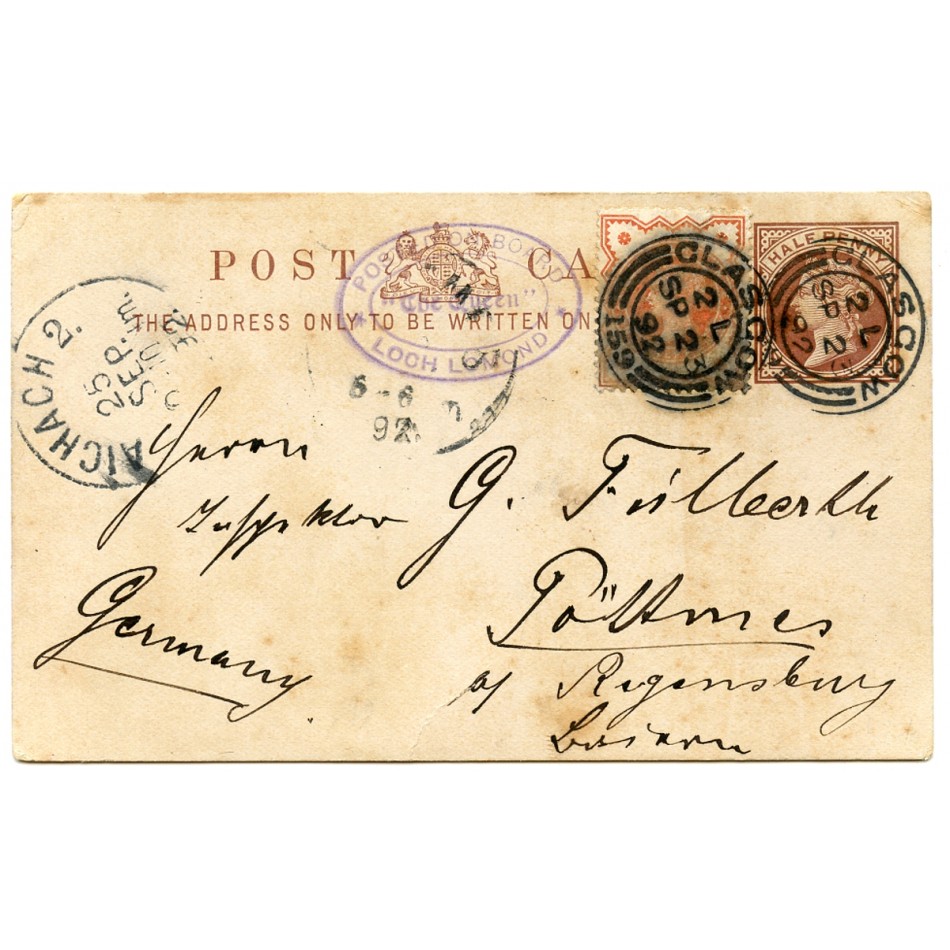 POST CA
POSTED ON BOARD
"The Queen"
LOCH LOMOND
THE ADDRESS ONLY TO BE WRITTEN ON
HALF PENNY
GLASGOW
2 L
SP 23
92
159
GLASGOW
2 L
SP 2
92
AICHACH 2.
25
SEP.
92.
5-6
92.
Herrn
Inspektor G. Füllberth
Germany
Pöttmes
Regensburg
Baiern